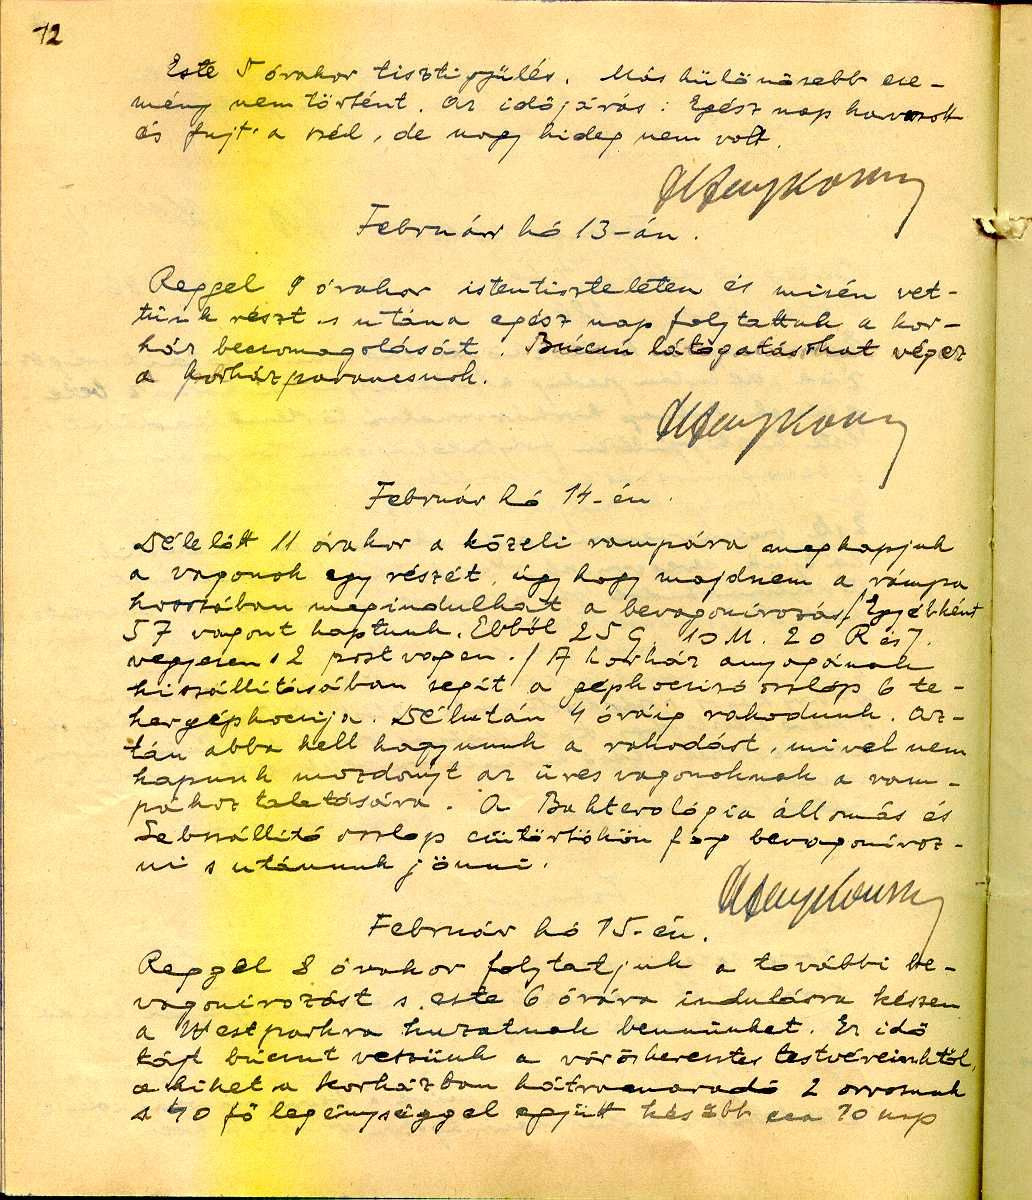 12
Este 5 órakor tisztigyülés. Más különösebb ese-
mény nem történt. Az időjárás: Egész nap havazott
és fujt a szél, de nagy hideg nem volt.
Február hó 13-án.
Reggel 9 órakor istentiszteleten és misén vet-
tünk részt s utána egész nap folytattuk a kor-
ház becsomagolását. Búcsú látogatásokat végez
a korházparancsnok.
Február hó 14-én.
Délelőtt 11 órakor a közeli rampára megkapjuk
a vagonok egy részét, úgy hogy majdnem a rámpa
hosszában megindulhat a bevagonirozás / Egyébként
57 vagont kaptunk. Ebből 25 G, 10 M. 20 R és
2 postvagen. / A korház anyagának
kiszállításában segít a gépkocsizó oszlop 6 te-
hergépkocsija. Délután 4 óráig rakodunk. Az-
tán abba kell hagynunk a rakodást, mivel nem
kapunk mozdonyt az üres vagonoknak a ram-
pához tolatására. A Bakterológia állomás és
Sebszállító oszlop csütörtökön fog bevagoniroz-
ni s utánunk jönni.
Február hó 15-én.
Reggel 8 órakor folytatjuk a további be-
vagonirozást s este 6 órára indulásra készen
a Westparkra huzatnak bennünket. Ez idő
tájt búcsut veszünk a vöröskeresztes testvéreinktől,
a kiket a korházban hátramaradó 2 orvosnak
s 40 fő legénységgel együtt később cca 10 nap